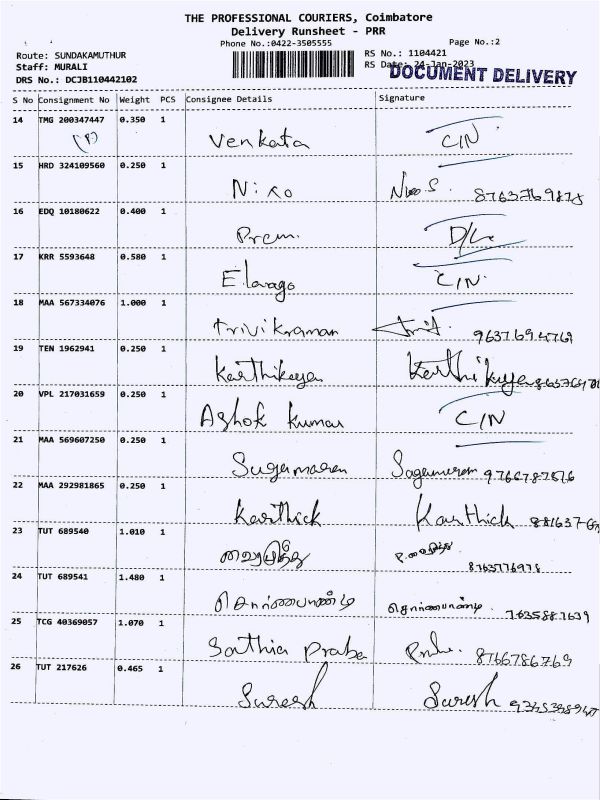 THE PROFESSIONAL COURIERS, Coimbatore
Delivery Runsheet - PRR
Phone No.:0422-3505555
Page No.:2
Route: SUNDAKAMUTHUR
RS No.: 1104421
Staff: MURALI
RS Date: 24-Jan-2023
DOCUMENT DELIVERY
DRS No.: DCJB110442102
S No Consignment No Weight PCS Consignee Details Signature
14 TMG 200347447 0.350 1 Venkata C/N
15 HRD 324109560 0.250 1 Niro
16 EDQ 10180622 0.400 1 Prem. D/L
17 KRR 5593648 0.580 1 Elango C/N.
18 MAA 567334076 1.000 1 trivikraman 9637694769
19 TEN 1962941 0.250 1 Karthikeya Karthikeya
20 VPL 217031659 0.250 1 Ashok kumar C/N
21 MAA 569607250 0.250 1 Sugumaran
22 MAA 292981865 0.250 1 Karthick Karthick
23 TUT 689540 1.010 1
24 TUT 689541 1.480 1
25 TCG 40369057 1.070 1 Sathia Praba 8766786769
26 TUT 217626 0.465 1 Suresh Suresh